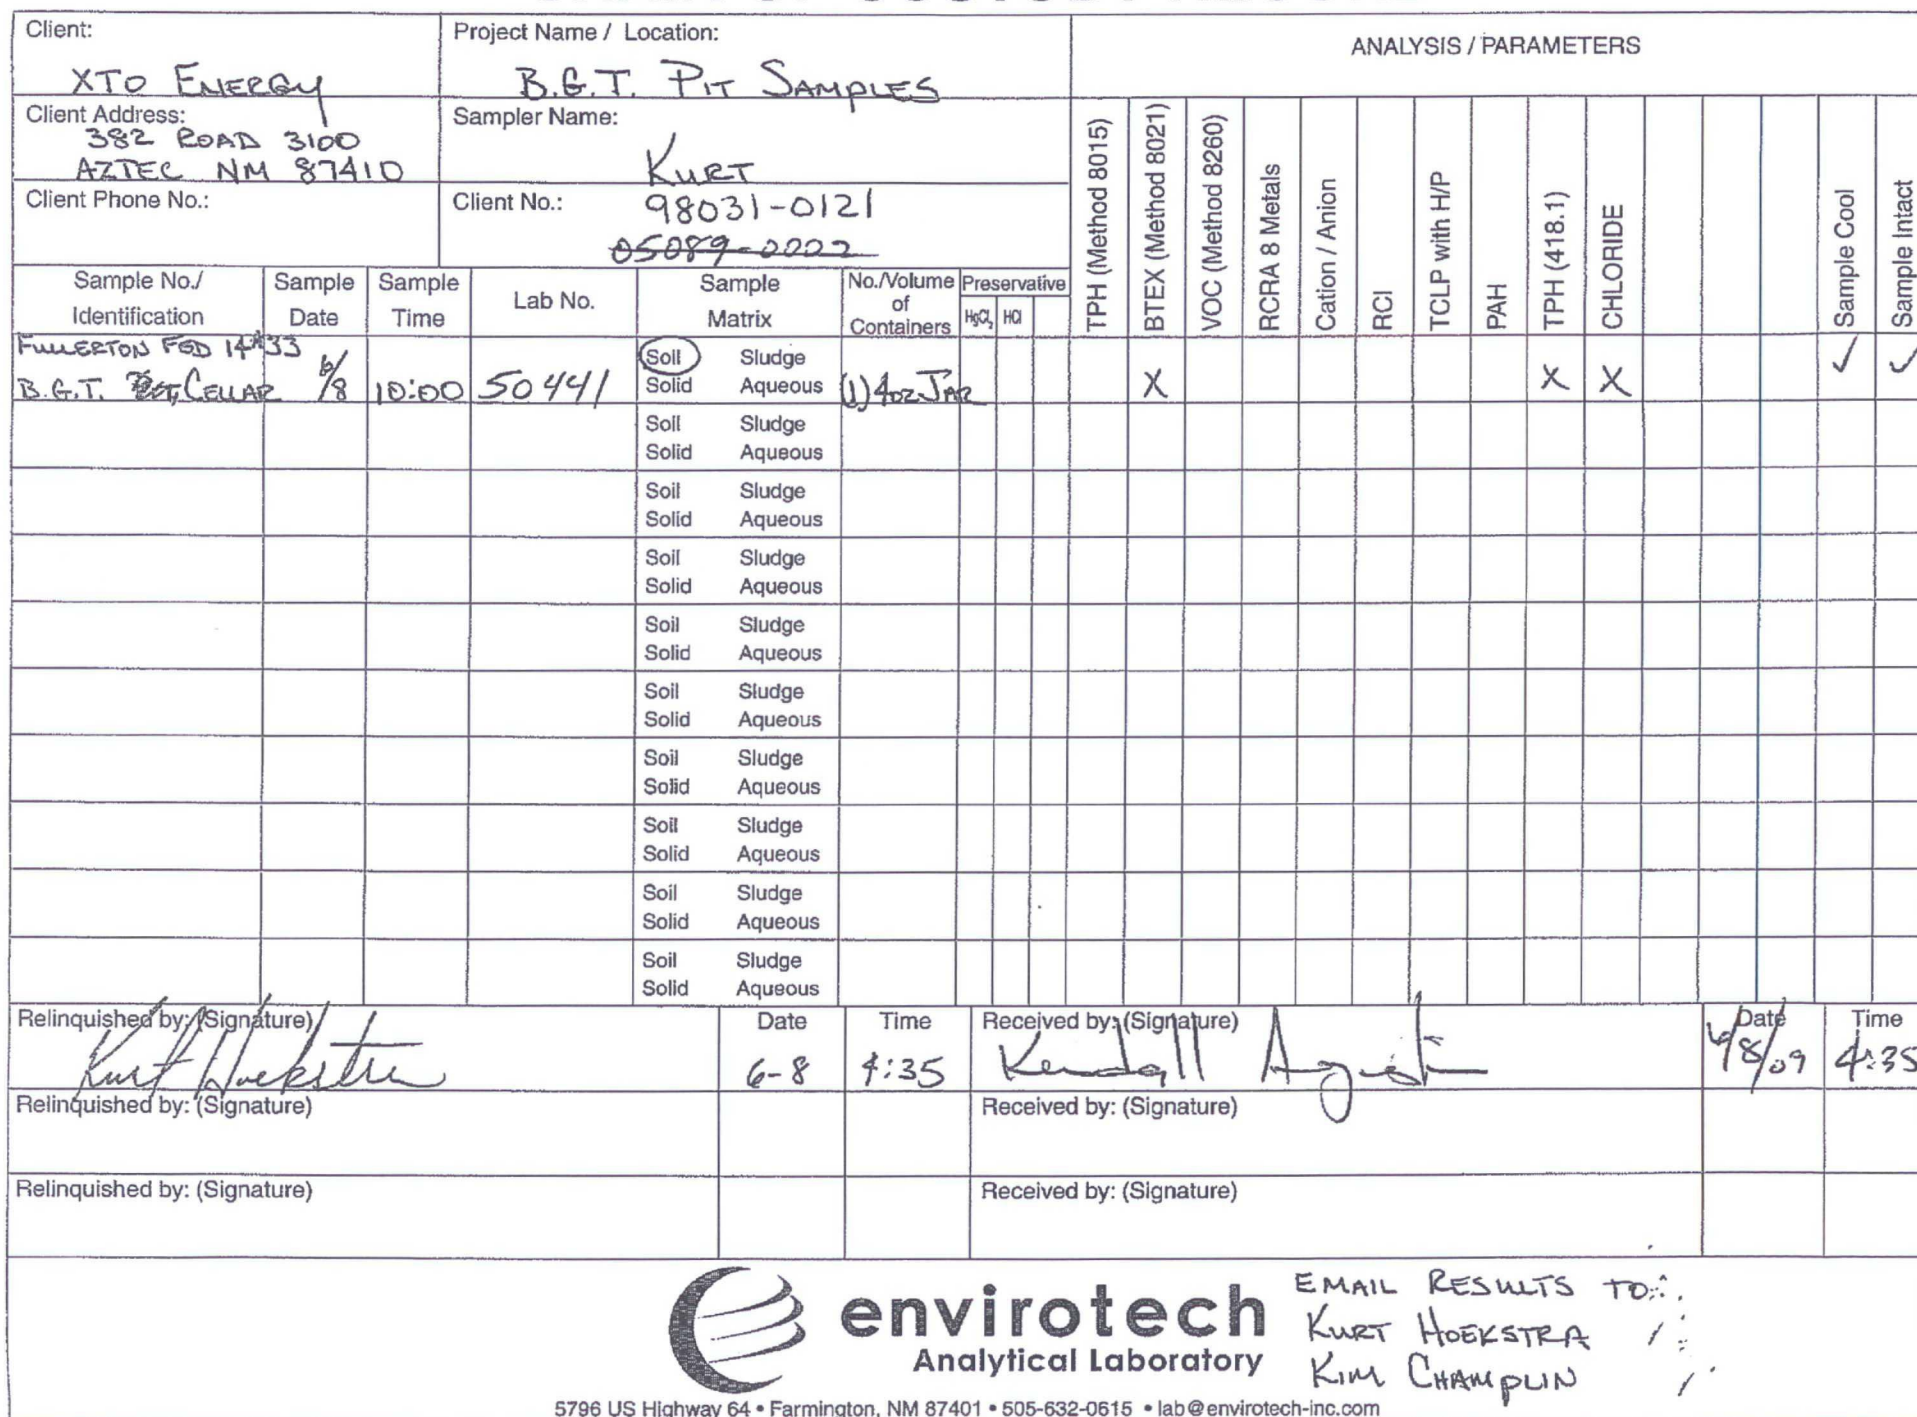 Client:
XTO ENERGY
Project Name / Location:
B.G.T. PIT SAMPLES
ANALYSIS / PARAMETERS
Client Address:
382 ROAD 3100
AZTEC NM 87410
Sampler Name:
KURT
Client Phone No.:
Client No.:
98031-0121
05089-0002
Sample No./
Identification
Sample
Date
Sample
Time
Lab No.
Sample
Matrix
No./Volume
of
Containers
Preservative
HgCl2 HCl
TPH (Method 8015)
BTEX (Method 8021)
VOC (Method 8260)
RCRA 8 Metals
Cation / Anion
RCI
TCLP with H/P
PAH
TPH (418.1)
CHLORIDE
Sample Cool
Sample Intact
FULLERTON FED 14#33
B.G.T. CELLAR 6/8 10:00 50441
Soil Sludge
Solid Aqueous
(1) 4oz JAR X X X ✓ ✓
Soil Sludge
Solid Aqueous
Soil Sludge
Solid Aqueous
Soil Sludge
Solid Aqueous
Soil Sludge
Solid Aqueous
Soil Sludge
Solid Aqueous
Soil Sludge
Solid Aqueous
Soil Sludge
Solid Aqueous
Soil Sludge
Solid Aqueous
Soil Sludge
Solid Aqueous
Relinquished by: (Signature)
Kurt Hoekstra
Date
6-8
Time
4:35
Received by: (Signature)
Kendall
Date
6/8/09
Time
4:35
Relinquished by: (Signature)
Received by: (Signature)
Relinquished by: (Signature)
Received by: (Signature)
envirotech
Analytical Laboratory
EMAIL RESULTS TO:
KURT HOEKSTRA
KIM CHAMPLIN
5796 US Highway 64 • Farmington, NM 87401 • 505-632-0615 • lab@envirotech-inc.com